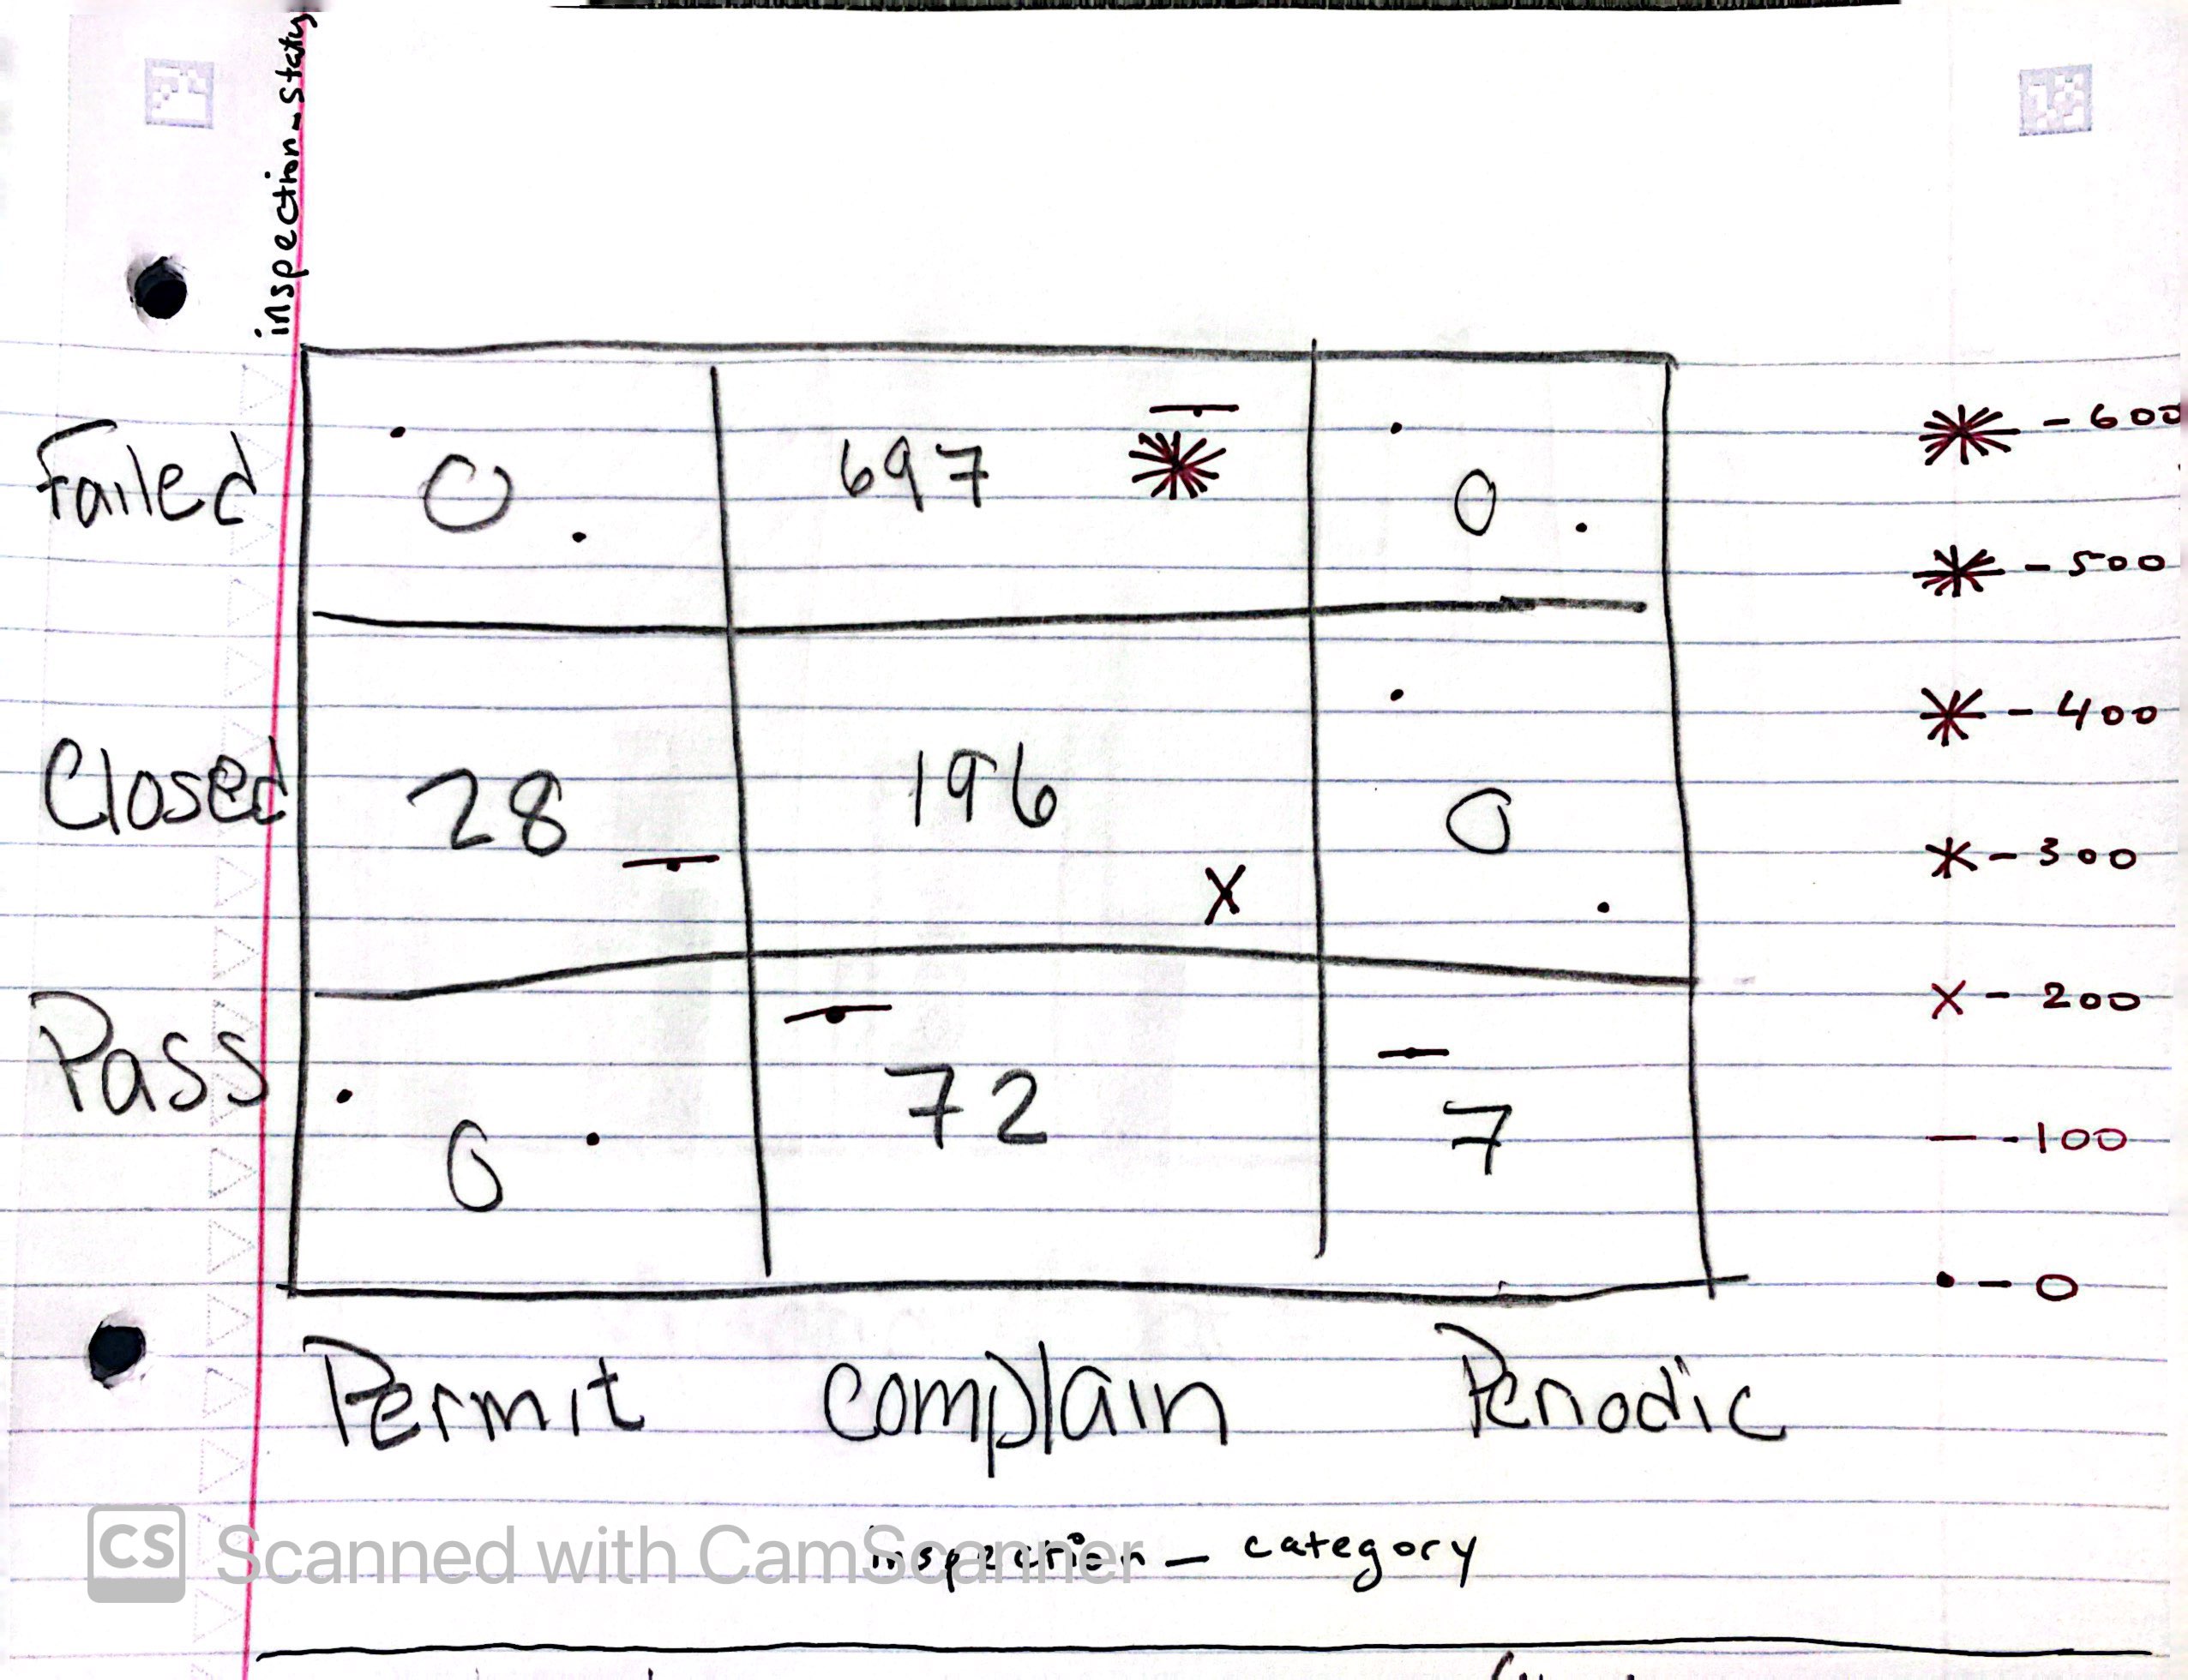 inspection-status
Failed 0 697 0
Closed 28 196 0
Pass 0 72 7
Permit Complain Periodic
inspection - category
- 600
- 500
- 400
- 300
x - 200
— - 100
• - 0
CS Scanned with CamScanner